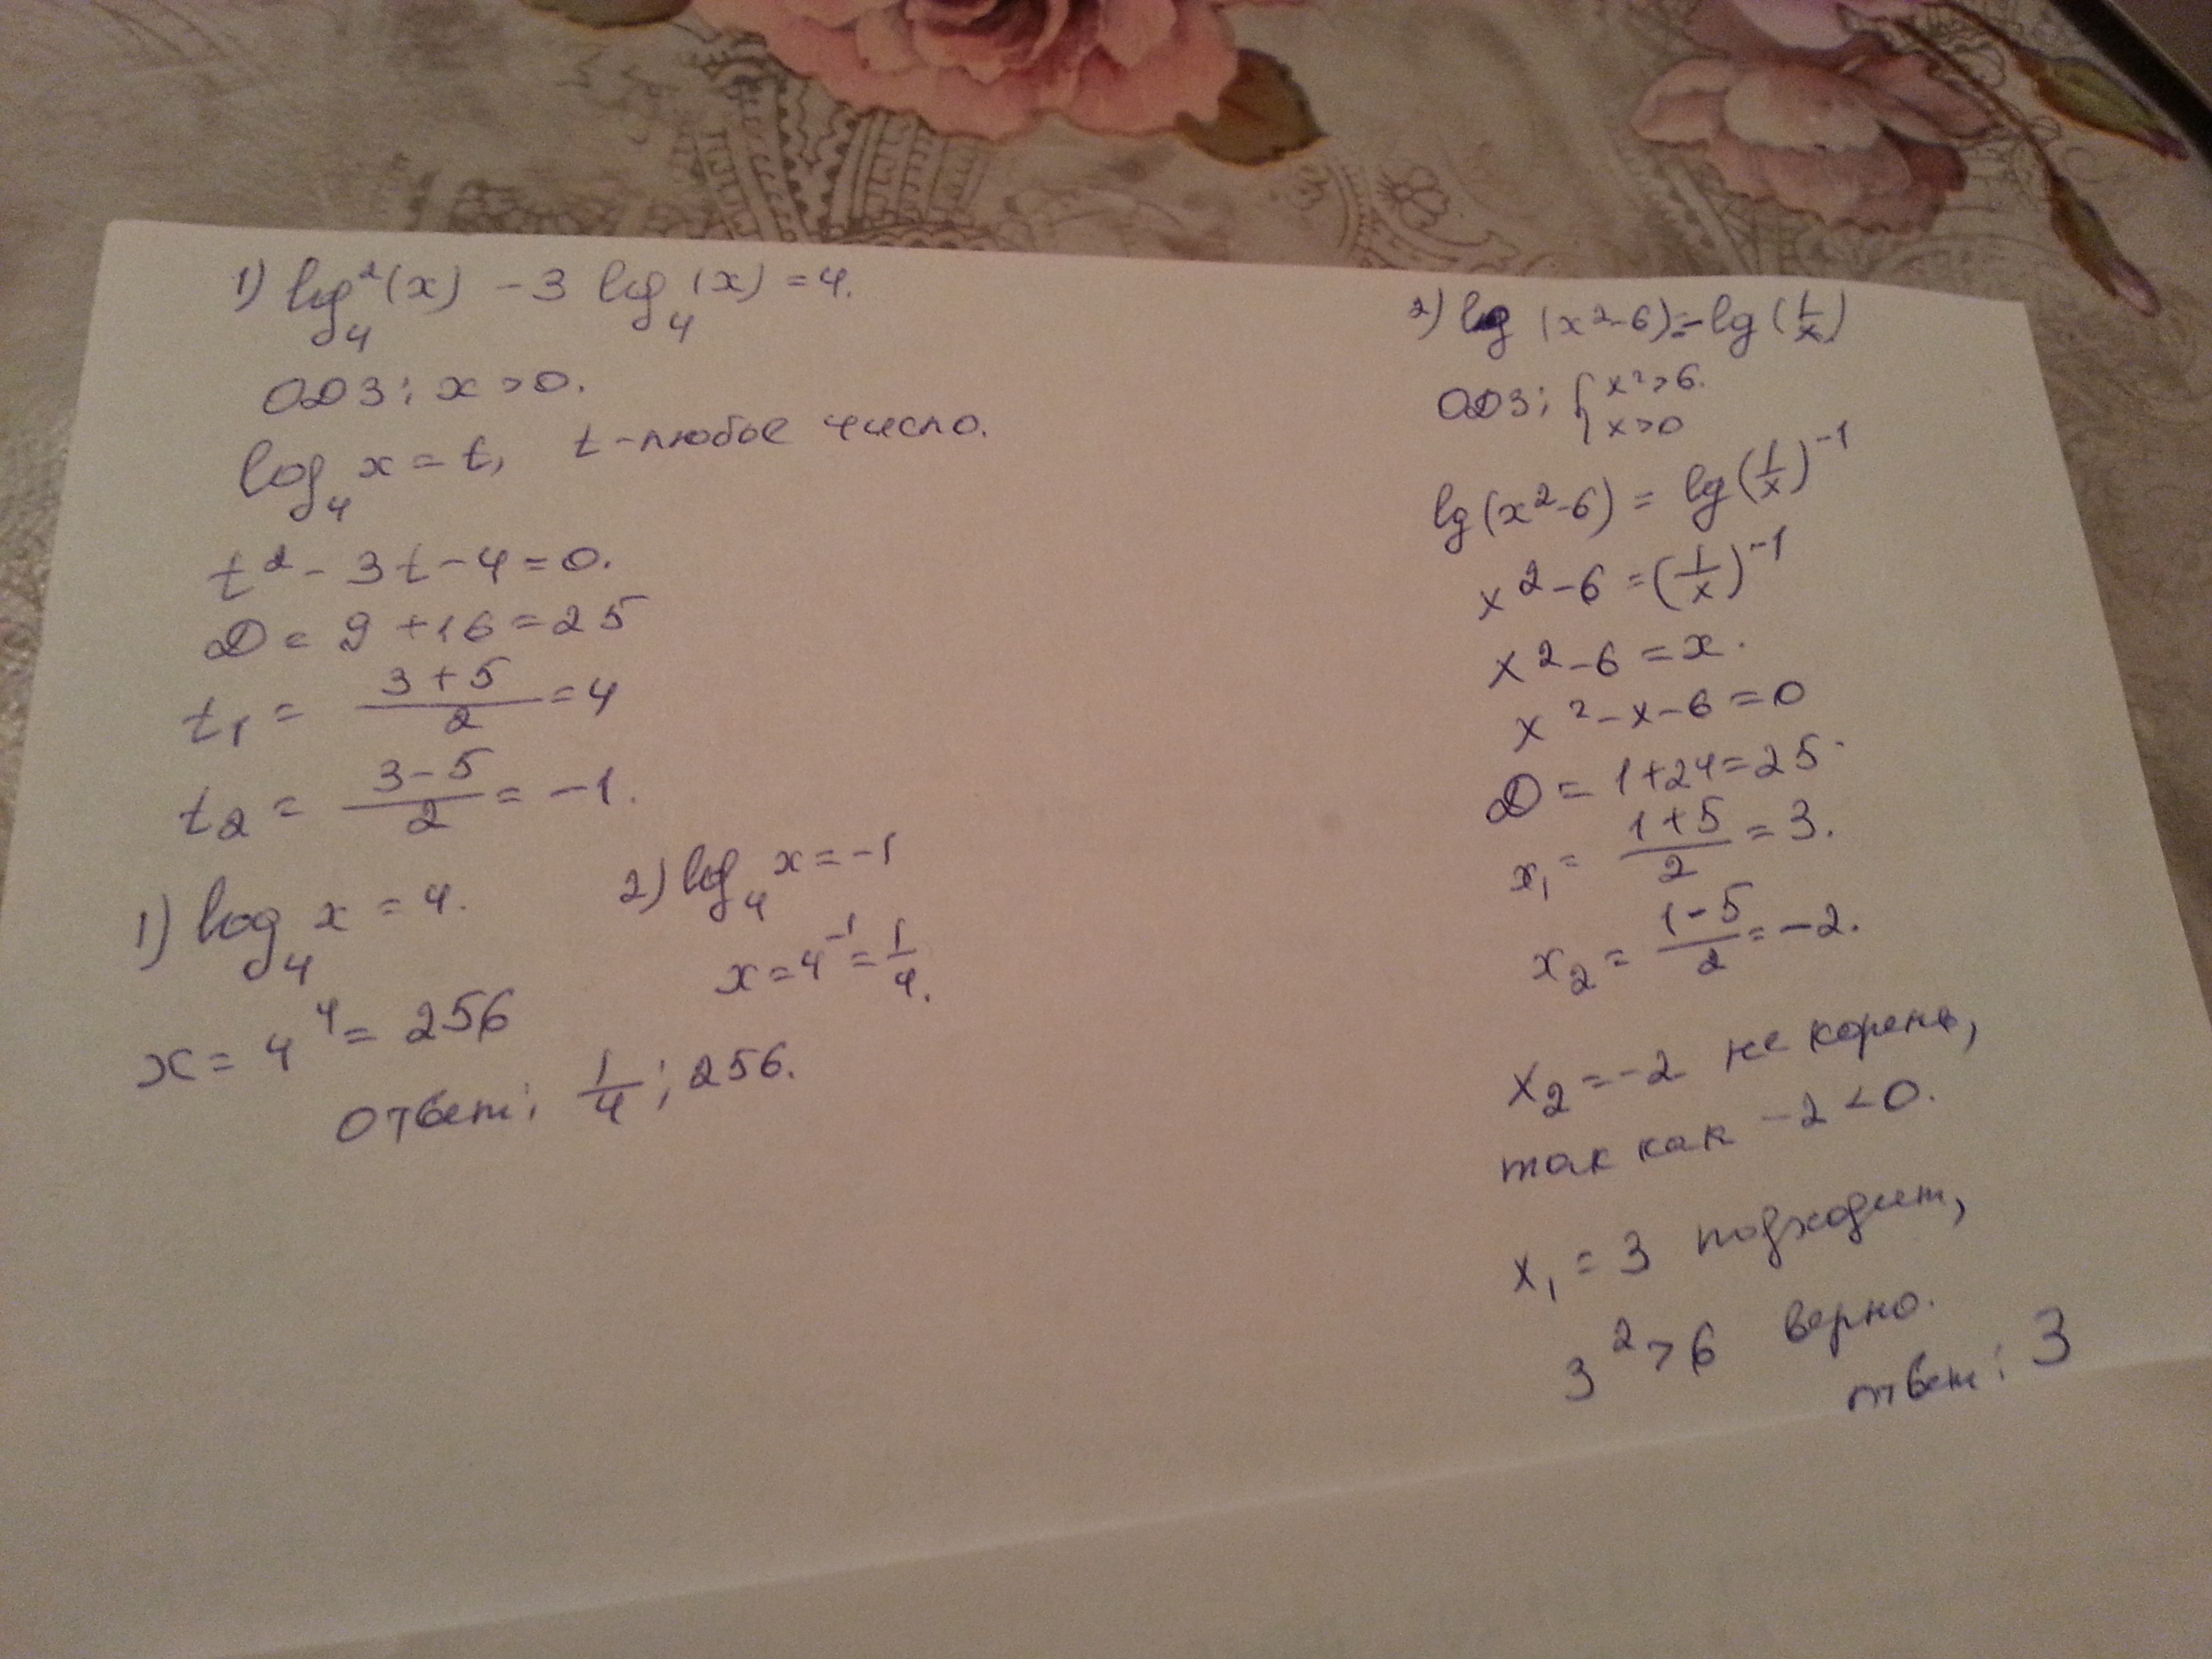 1) log₄²(x) - 3 log₄(x) = 4.
ОДЗ: x > 0.
log₄ x = t, t - любое число.
t² - 3t - 4 = 0.
D = 9 + 16 = 25
t₁ = (3 + 5)/2 = 4
t₂ = (3 - 5)/2 = -1.
1) log₄ x = 4.
x = 4⁴ = 256
2) log₄ x = -1
x = 4⁻¹ = 1/4.
ответ: 1/4; 256.
2) lg (x² - 6) = -lg (1/x)
ОДЗ: { x² > 6.
x > 0
lg (x² - 6) = lg (1/x)⁻¹
x² - 6 = (1/x)⁻¹
x² - 6 = x.
x² - x - 6 = 0
D = 1 + 24 = 25.
x₁ = (1 + 5)/2 = 3.
x₂ = (1 - 5)/2 = -2.
x₂ = -2 не корень,
так как -2 < 0.
x₁ = 3 подходит,
3² > 6 верно.
ответ: 3